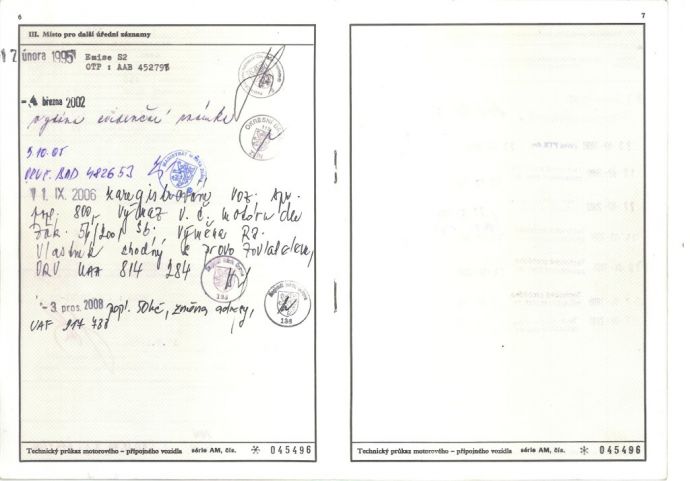 6
III. Místo pro další úřední záznamy
17 února 1995
Emise S2
OTP : AAB 45279
-4. března 2002
vydána evidenční známka
5.10.05
BAD 482653
11. IX. 2006 zaregistrování voz.
800,- výmaz v. č. motoru dle
zák. 56/2001 Sb. výměna RZ.
Vlastník shodný s provozovatelem,
ORV UAZ 814 284
-3. pros. 2008 popl. 50kč, změna adresy,
UAF 917 738
Technický průkaz motorového – přípojného vozidla série AM, čís. * 045496
7
Technický průkaz motorového – přípojného vozidla série AM, čís. * 045496